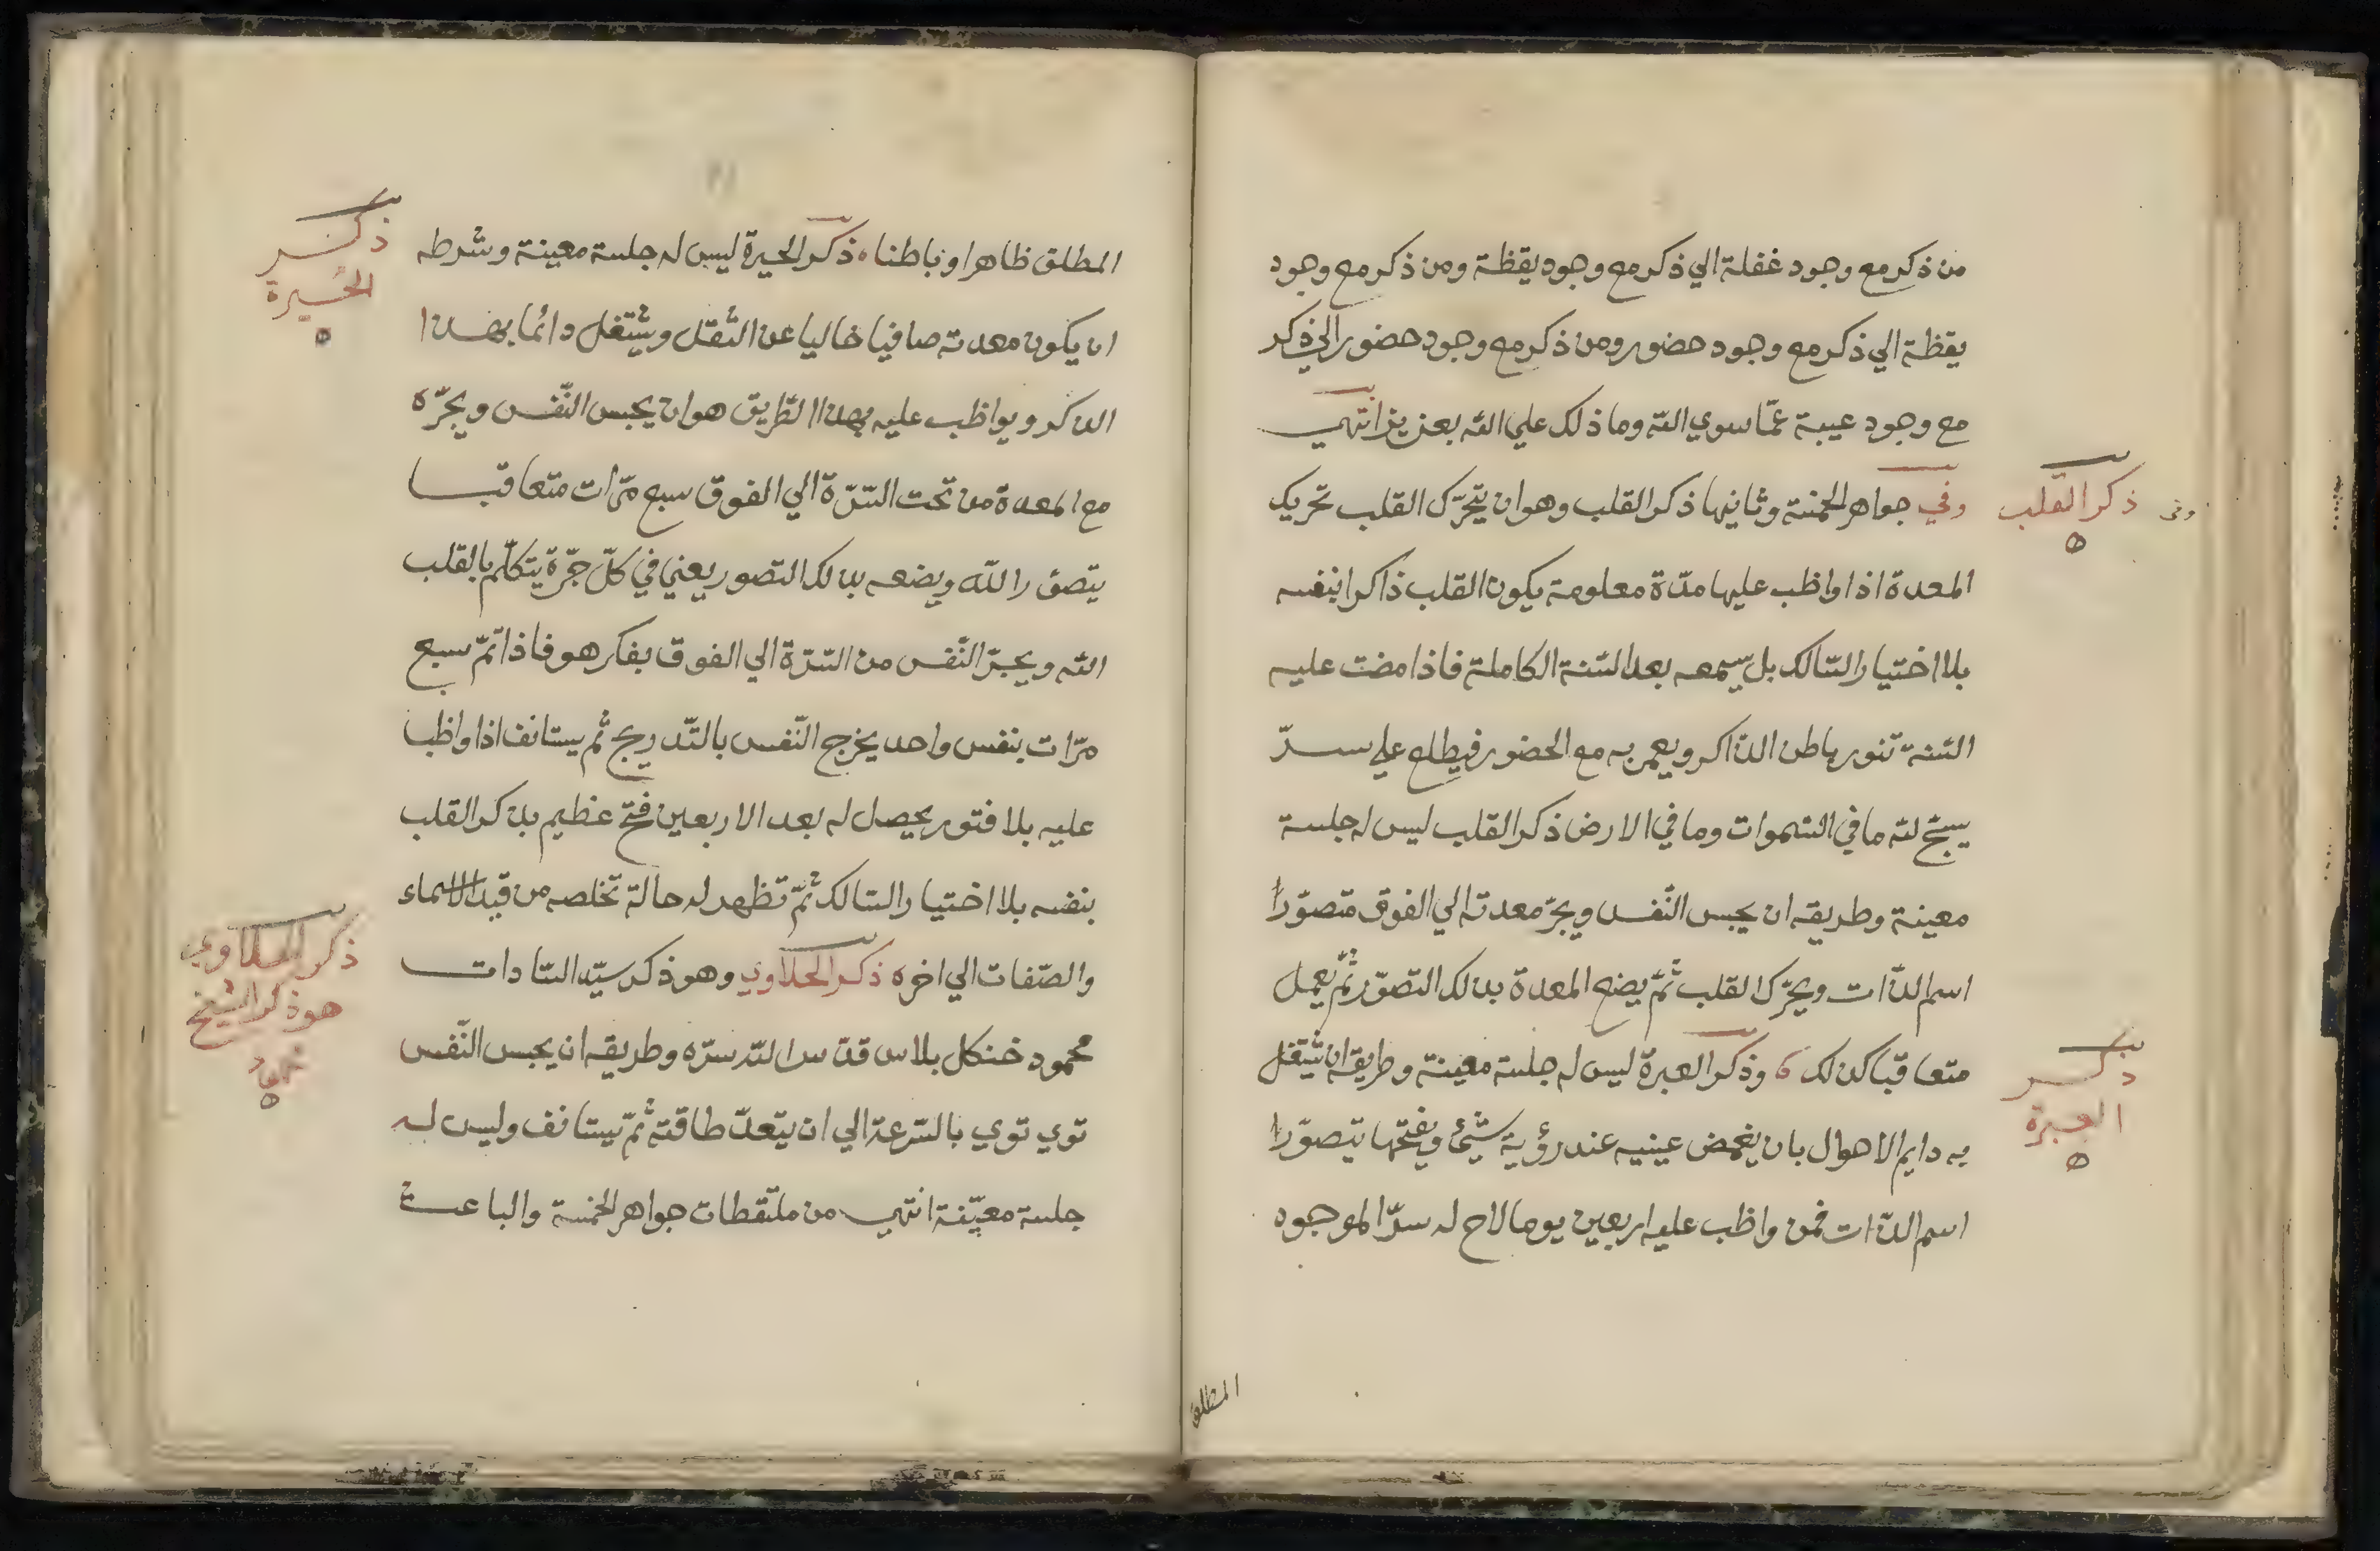 من ذكر مع وجود غفلة الي ذكر مع وجود يقظة ومن ذكر مع وجود
يقظة الي ذكر مع وجود حضور ومن ذكر مع وجود حضور الي ذكر
مع وجود غيبة عمّا سوي الله وما ذلك علي الله بعزيز انتهي
وفي جواهر الخمسة وثانيها ذكر القلب وهو ان يتحرّك القلب تحريك
ذكر القلب
المعدة اذا واظب عليها مدّة معلومة يكون القلب ذاكرا بنفسه
بلا اختيار السّالك بل يسمعه بعد السّنة الكاملة فاذا مضت عليه
السّنة تنور باطن الذّاكر ويعمر به مع الحضور فيطلع علي سرّ
يسبّح لله ما في السّموات وما في الارض ذكر القلب ليس له جلسة
معينة وطريقه ان يحبس النّفس ويجرّ معدته الي الفوق متصوّرا
اسم الذّات ويحرّك القلب ثمّ يضع المعدة بذلك التصوّر ثمّ يعمل
متعاقبا كذلك وذكر العبرة ليس له جلسة معينة وطريقه ان يشتغل
ذكر
العبرة
به دايم الاهوال بان يغمض عينيه عند رؤية شيئ ويفتحها يتصوّرا
اسم الذّات فمن واظب عليه اربعين يوما لاح له سرّ الموجود
المطلق
المطلق ظاهرا وباطنا ذكر الحيرة ليس له جلسة معينة وشرطه
ذكر
الحيرة
ان يكون معدته صافيا خاليا عن الثّقل ويشتغل دائما بهذا
الذكر ويواظب عليه بهذا الطّريق هو ان يحبس النّفس ويجرّه
مع المعدة من تحت السّرّة الي الفوق سبع مرّات متعاقبا
يتصوّر الله ويضعه بذلك التصور يعني في كلّ جرّة يتكلّم بالقلب
الله ويجرّ النّفس من السّرّة الي الفوق بفكر هو فاذا تمّ سبع
مرّات بنفس واحد يخرج النّفس بالتّدريج ثم يستانف اذا واظب
عليه بلا فتور يحصل له بعد الاربعين فتح عظيم بذكر القلب
بنفسه بلا اختيار السّالك ثمّ تظهر له حالة تخلصه من قيد الاسماء
والصّفات الي اخره ذكر الحلاوي وهو ذكر سيّد السّادات
ذكر الحلاوي
هو ذكر الشيخ
محمود خنكل بلاس قدّس الله سرّه وطريقه ان يحبس النّفس
توي توي بالسّرعة الي ان يتعدّ طاقته ثمّ يستانف وليس له
جلسة معيّنة انتهي من ملتقطات جواهر الخمسة والباعث